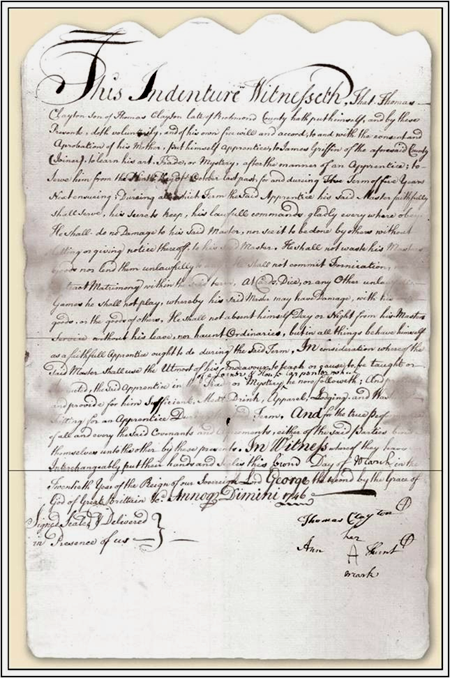 This Indenture Witnesseth, That Thomas
Clayton Son of Thomas Clayton late of Richmond County hath put himself, and by these
Presents, doth voluntarily, and of his own free will and accord, to and with the consent and
Aprobation of his Mother, put himself apprentice to James Griffin of the aforesaid County
(Joiner) to learn his art, Trade, or Mystery, after the manner of an Apprentice; to
Serve him from the of October last past, for and during The Term of five Years
Next ensuing; During all which Term the Said Apprentice his Said Master faithfully
Shall Serve, his Secrets keep, his lawfull commands gladly every where obey
He Shall do no Damage to his Said Master, nor See it to be done by others without
letting or giving notice thereof to his Said Master. He Shall not waste his Masters
goods nor lend them unlawfully to Shall not commit Fornication, nor
contract Matrimony within the Said term. At Cards, Dice, or any Other unlawfull
Games he Shall not play, whereby his Said Master may have Damage, with his
goods, or the goods of others. He Shall not absent himself Day or Night from his Masters
Service without his leave, nor haunt Ordinaries, but in all things behave himself
as a faithfull Apprentice ought to do during the Said Term. In consideration whereof the
Said Master Shall use the Utmost of his Endeavour to teach or cause to be taught or
of a Joiner & House Carpenter which
the Said Apprentice in Trade or Mystery he now followeth; And
and provide for him Sufficient Meat, Drink, Apparel, Lodging, and
fitting for an Apprentice Term. And for the true
of all and every the Said Covenants and Agreements, either of the Said Parties bind
themselves unto the other by these presents. In Witness whereof they have
Interchangeably put their hands and Seales this Second Day of March in the
Twentieth Year of the Reign of our Sovereign Lord George the Second by the Grace of
God of Great Brittain &c. Anneq Dimini 1746
Signed Sealed & Delivered
in Presence of us
Thomas Clayton
her
Ann A Hunt
mark